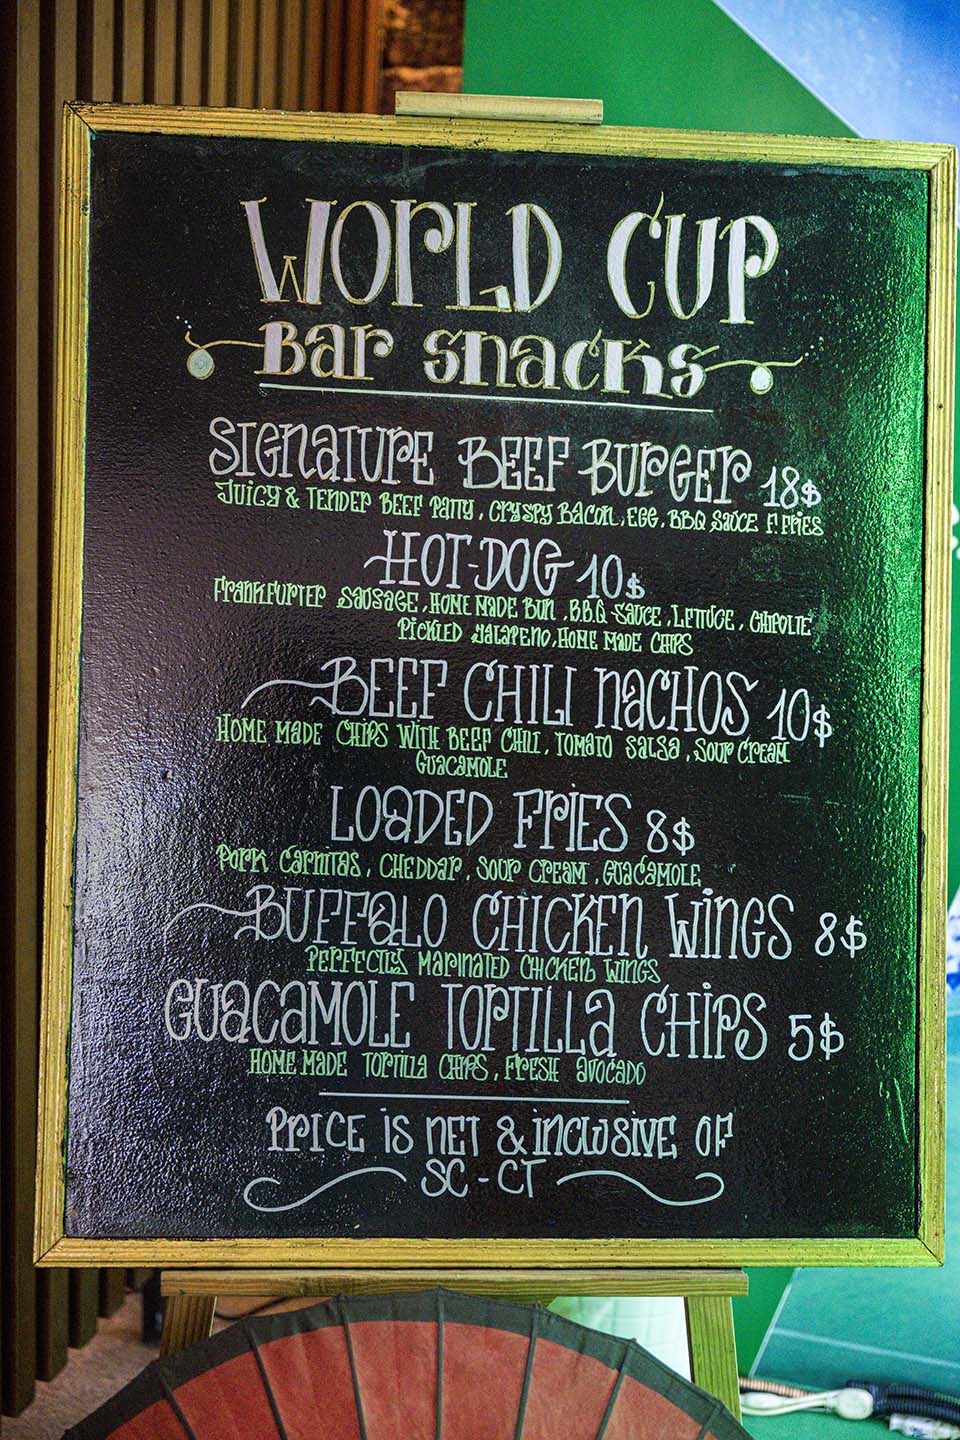 WORLD CUP
Bar Snacks
SIGNATURE BEEF BURGER 18$
JUICY & TENDER BEEF PATTY, CRYSPY BACON, EGG, BBQ SAUCE F. FRIES
HOT-DOG 10$
FRANKFURTER SAUSAGE, HOME MADE BUN, B.B.Q SAUCE, LETTUCE, CHIPOLTE
PICKLED JALAPENO, HOME MADE CHIPS
BEEF CHILI NACHOS 10$
HOME MADE CHIPS WITH BEEF CHILI, TOMATO SALSA, SOUR CREAM
GUACAMOLE
LOADED FRIES 8$
PORK CARNITAS, CHEDDAR, SOUR CREAM, GUACAMOLE
BUFFALO CHICKEN WINGS 8$
PERFECTLY MARINATED CHICKEN WINGS
GUACAMOLE TORTILLA CHIPS 5$
HOME MADE TORTILLA CHIPS, FRESH AVOCADO
PRICE IS NET & INCLUSIVE OF
SC - CT